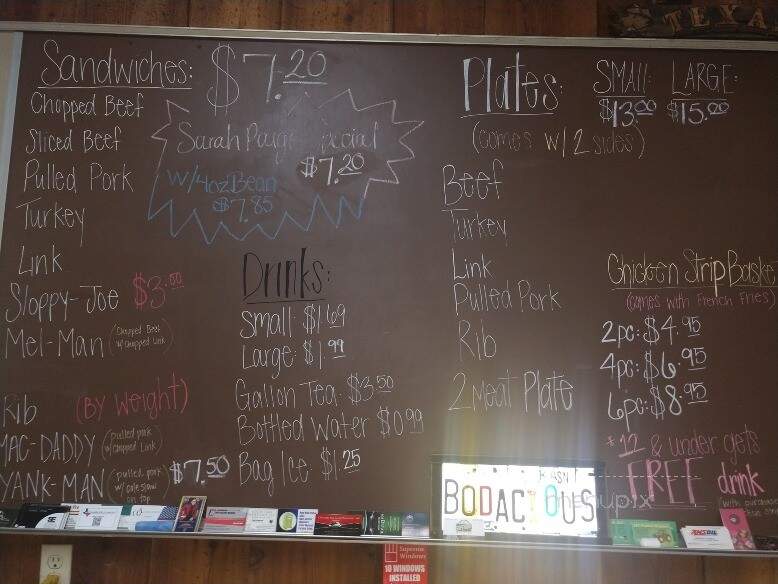 TEXA
Sandwiches: $7.20
Chopped Beef
Sliced Beef
Pulled Pork
Turkey
Link
Sloppy-Joe $3.50
Mel-Man (Chopped Beef w/ Chopped Link)
Rib (BY WEIGHT)
MAC-DADDY (pulled pork w/ Chopped Link)
YANK-MAN (pulled pork w/ cole slaw on top) $7.50
Sarah Paige Special
$7.20
w/4oz Bean
$7.85
Drinks:
Small: $1.69
Large: $1.99
Gallon Tea: $3.50
Bottled Water $0.99
Bag Ice: $1.25
Plates: SMALL: LARGE:
$13.00 $15.00
(comes w/ 2 sides)
Beef
Turkey
Link
Pulled Pork
Rib
2 Meat Plate
Chicken Strip Baske
(comes with French Fries)
2pc: $4.95
4pc: $6.95
6pc: $8.95
*12 & under gets
FREE drink
BODACIOUS
Supreme
Windows
10 WINDOWS
INSTALLED